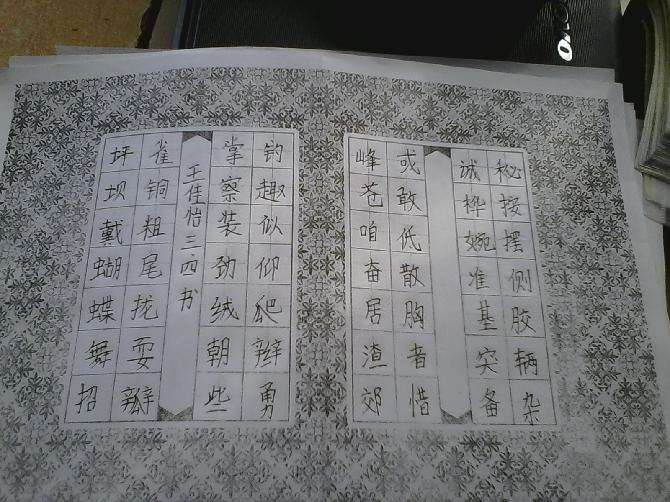 坪坝戴蝴蝶舞招
雀铜粗尾拢耍瓣
王佳怡三四书
掌察装劲绒朝些
钓趣似仰爬辫勇
峰苍咱奋居渣郊
或敢低散胸者惜
诚桦婉准基突备
秘按摆侧胶辆杂